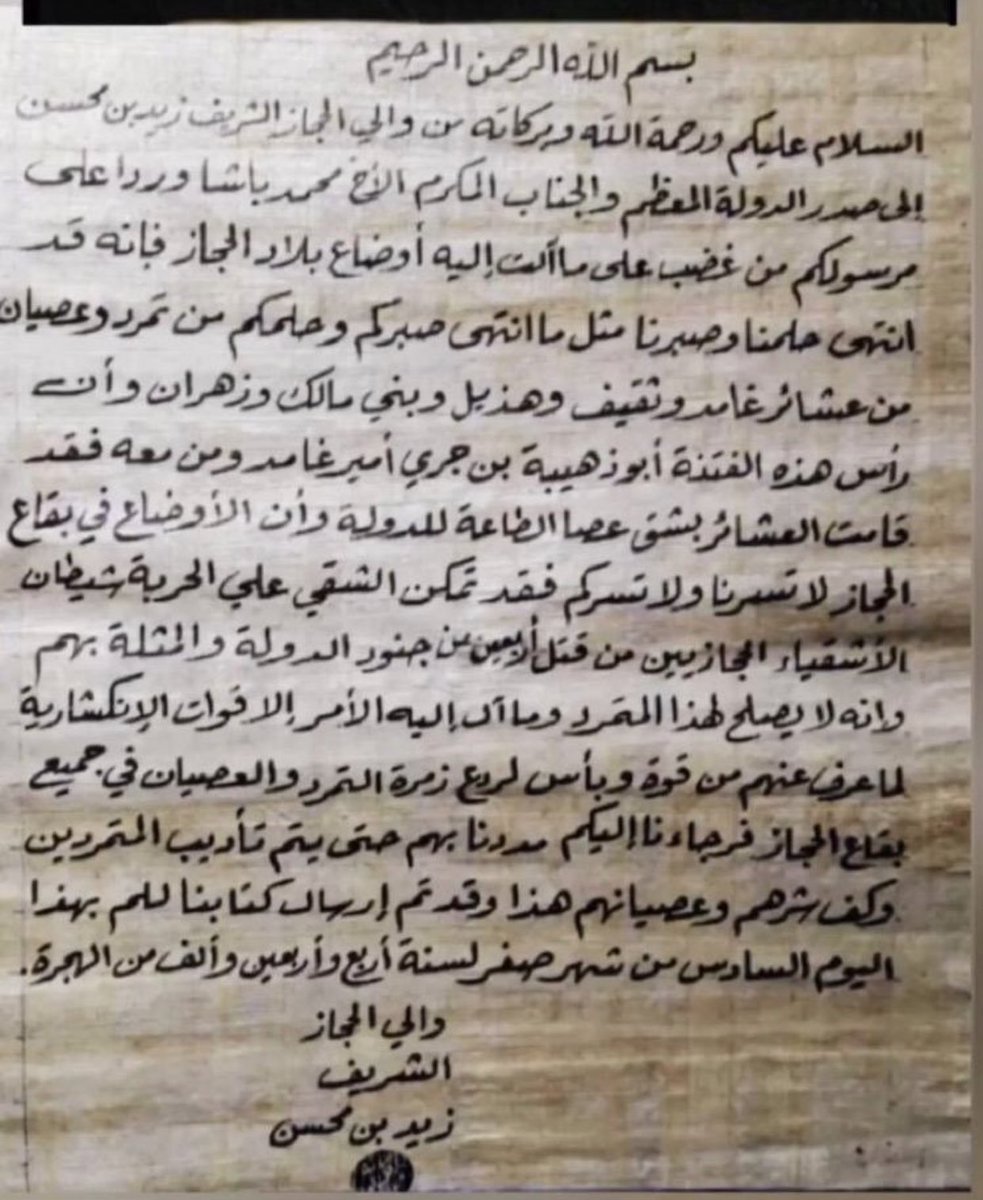 بسم الله الرحمن الرحيم
السلام عليكم ورحمة الله وبركاته من والي الحجاز الشريف زيد بن محسن
إلى صدر الدولة المعظم والجناب المكرم الأخ محمد باشا وردا على
مرسولكم من غضب على ما آلت إليه أوضاع بلاد الحجاز فإنه قد
انتهى حلمنا وصبرنا مثل ما انتهى صبركم وحلمكم من تمرد وعصيان
من عشائر غامد وثقيف وهذيل وبني مالك وزهران وأن
رأس هذه الفتنة أبو ذهيبة بن جري أمير غامد ومن معه فقد
قامت العشائر بشق عصا الطاعة للدولة وأن الأوضاع في بقاع
الحجاز لا تسرنا ولا تسركم فقد تمكن الشقي علي الحربة شيطان
الأشقياء الحجازيين من قتل أربعين من جنود الدولة والمثلة بهم
وانه لا يصلح لهذا التمرد وما آل إليه الأمر إلا قوات الإنكشارية
لما عرف عنهم من قوة وبأس لردع زمرة التمرد والعصيان في جميع
بقاع الحجاز فرجاءنا إليكم مددنا بهم حتى يتم تأديب المتمردين
وكف شرهم وعصيانهم هذا وقد تم إرسال كتابنا للم بهذا
اليوم السادس من شهر صفر لسنة أربع وأربعين وألف من الهجرة.
والي الحجاز
الشريف
زيد بن محسن